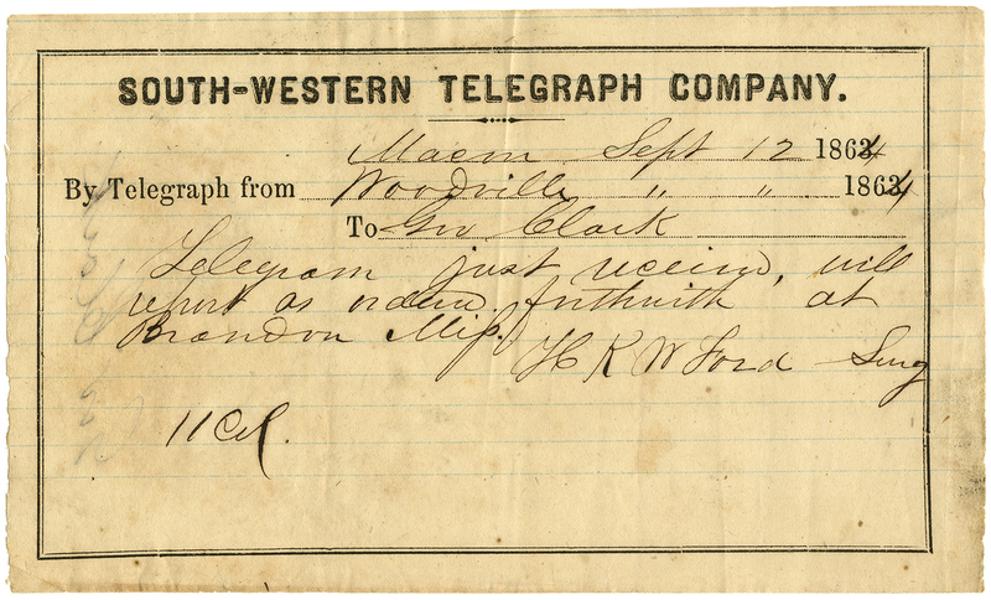 SOUTH-WESTERN TELEGRAPH COMPANY.
Macon Sept 12 1864
By Telegraph from Woodville " " 1864
To Gov Clark
Telegram just received, will
report as ordered forthwith at
Brandon Miss.
H K W Ford Surg
11 Col.